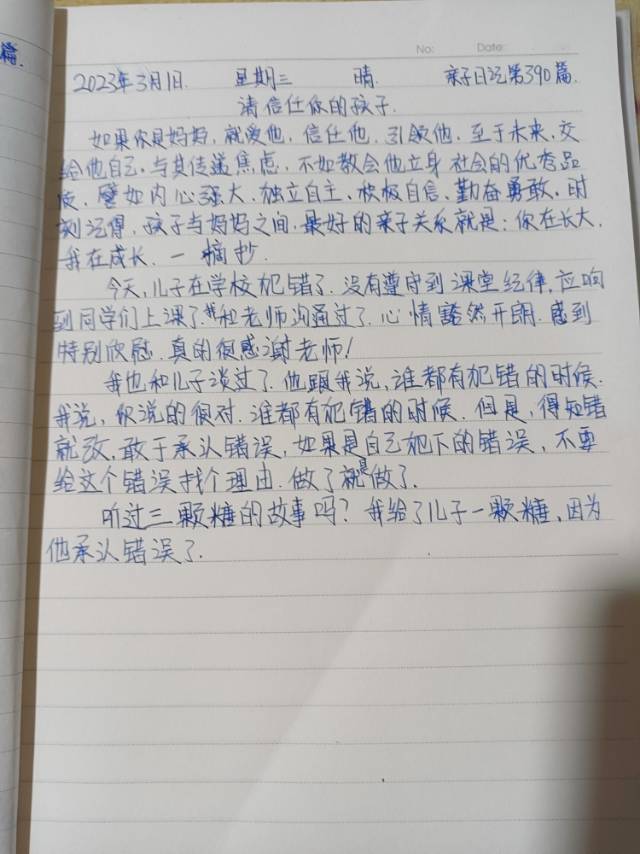 No: Date:
篇.
2023年3月1日. 星期三 晴. 亲子日记第390篇.
请信任你的孩子.
如果你是妈妈, 就爱他, 信任他, 引领他. 至于未来, 交
给他自己, 与其传递焦虑, 不如教会他立身社会的优秀品
质, 譬如内心强大, 独立自主, 积极自信, 勤奋勇敢, 时
刻记得, 孩子与妈妈之间, 最好的亲子关系就是: 你在长大,
我在成长. 一 摘抄.
今天, 儿子在学校犯错了. 没有遵守到课堂纪律, 应响
到同学们上课了. 我和老师沟通过了. 心情豁然开朗. 感到
特别欣慰. 真的很感谢老师!
我也和儿子谈过了. 他跟我说, 谁都有犯错的时候.
我说, 你说的很对. 谁都有犯错的时候. 但是, 得知错
就改, 敢于承认错误, 如果是自己犯下的错误, 不要
给这个错误找个理由. 做了就是做了.
听过三颗糖的故事吗? 我给了儿子一颗糖, 因为
他承认错误了.